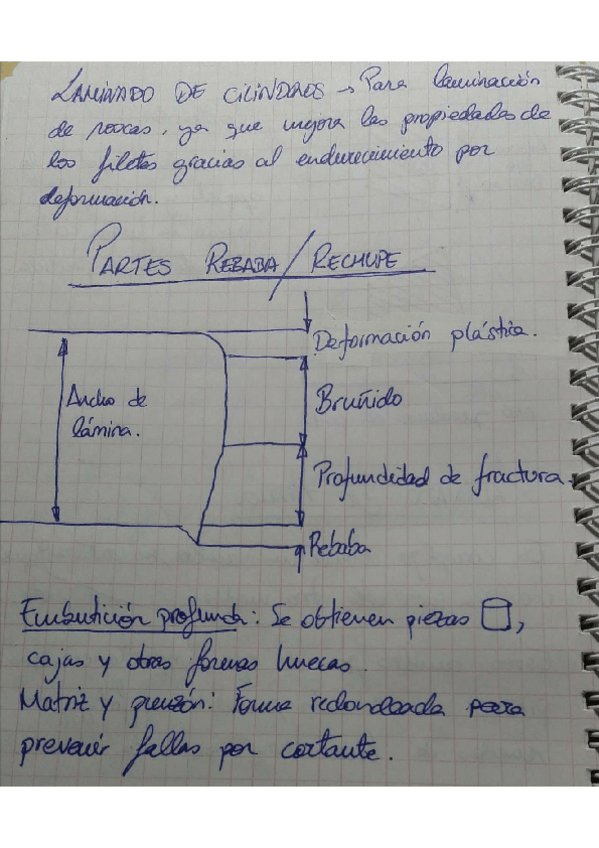 LAMINADO DE CILINDROS → Para laminación
de roscas, ya que mejora las propiedades de
los filetes gracias al endurecimiento por
deformación.
PARTES REBABA/RECHUPE
Deformación plástica.
Ancho de
lámina.
Bruñido
Profundidad de fractura.
Rebaba
Embutición profunda: Se obtienen piezas ,
cajas y otras formas huecas.
Matriz y punzón: Forma redondeada para
prevenir fallas por cortante.